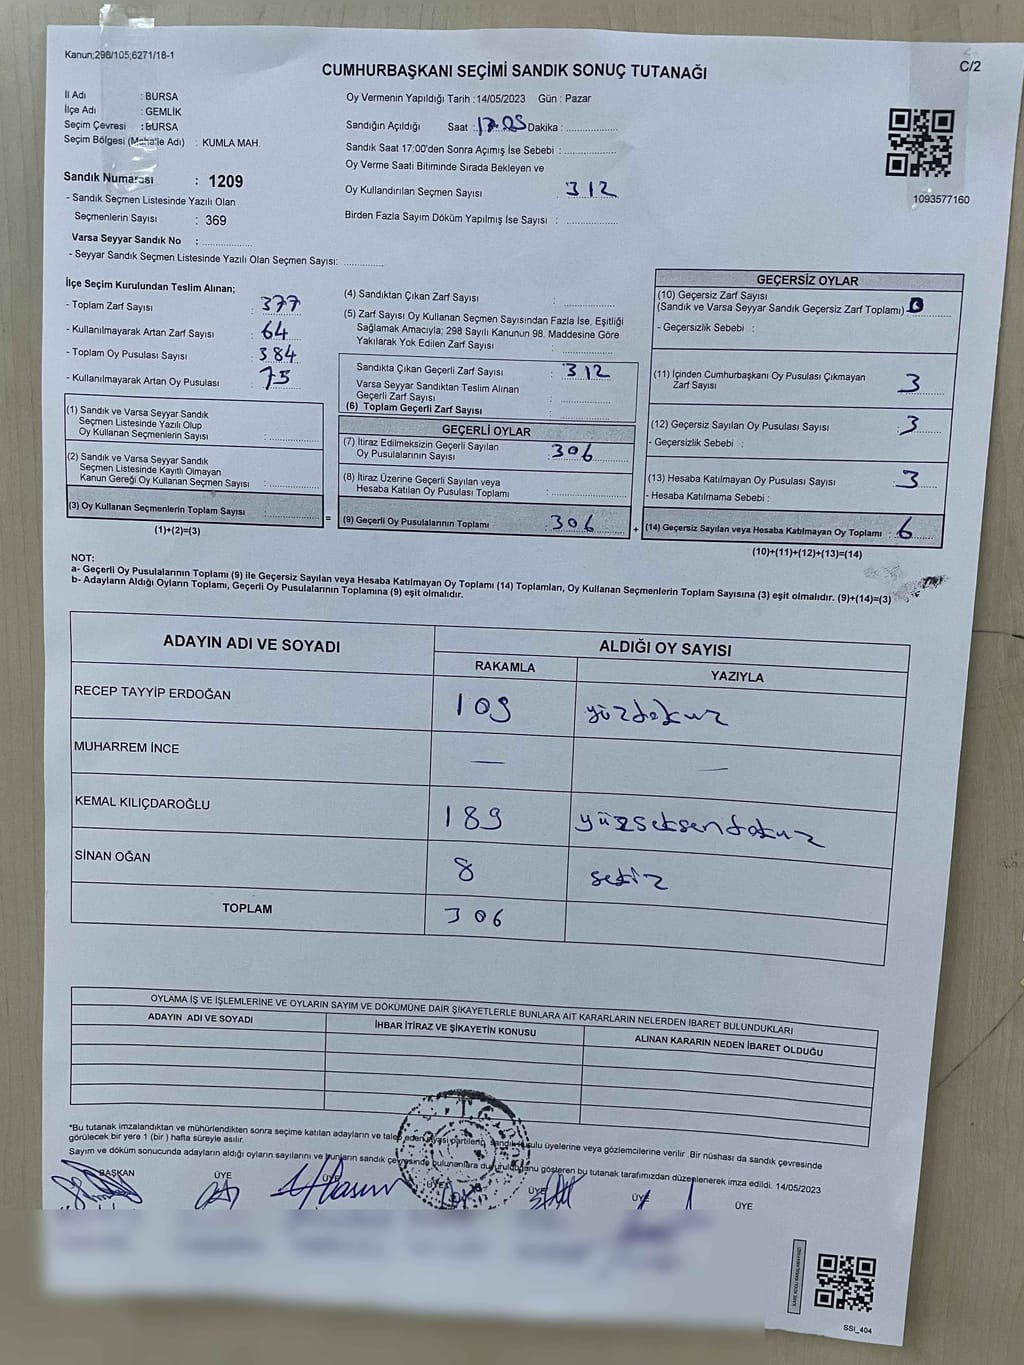 Kanun;298/105;6271/18-1
C/2
CUMHURBAŞKANI SEÇİMİ SANDIK SONUÇ TUTANAĞI
İl Adı : BURSA
İlçe Adı : GEMLİK
Seçim Çevresi : BURSA
Seçim Bölgesi (Mahalle Adı) : KUMLA MAH.
Sandık Numarası : 1209
- Sandık Seçmen Listesinde Yazılı Olan
Seçmenlerin Sayısı : 369
Varsa Seyyar Sandık No :
- Seyyar Sandık Seçmen Listesinde Yazılı Olan Seçmen Sayısı:
Oy Vermenin Yapıldığı Tarih :14/05/2023 Gün : Pazar
Sandığın Açıldığı Saat : 17.05 Dakika :
Sandık Saat 17:00'den Sonra Açımış İse Sebebi :
Oy Verme Saati Bitiminde Sırada Bekleyen ve
Oy Kullandırılan Seçmen Sayısı 312
Birden Fazla Sayım Döküm Yapılmış İse Sayısı :
1093577160
İlçe Seçim Kurulundan Teslim Alınan;
- Toplam Zarf Sayısı 377
- Kullanılmayarak Artan Zarf Sayısı 64
- Toplam Oy Pusulası Sayısı 384
- Kullanılmayarak Artan Oy Pusulası 75
(1) Sandık ve Varsa Seyyar Sandık
Seçmen Listesinde Yazılı Olup
Oy Kullanan Seçmenlerin Sayısı :
(2) Sandık ve Varsa Seyyar Sandık
Seçmen Listesinde Kayıtlı Olmayan
Kanun Gereği Oy Kullanan Seçmen Sayısı :
(3) Oy Kullanan Seçmenlerin Toplam Sayısı :
(1)+(2)=(3)
=
(4) Sandıktan Çıkan Zarf Sayısı :
(5) Zarf Sayısı Oy Kullanan Seçmen Sayısından Fazla İse, Eşitliği
Sağlamak Amacıyla; 298 Sayılı Kanunun 98. Maddesine Göre
Yakılarak Yok Edilen Zarf Sayısı :
Sandıkta Çıkan Geçerli Zarf Sayısı : 312
Varsa Seyyar Sandıktan Teslim Alınan
Geçerli Zarf Sayısı :
(6) Toplam Geçerli Zarf Sayısı :
GEÇERLİ OYLAR
(7) İtiraz Edilmeksizin Geçerli Sayılan
Oy Pusulalarının Sayısı : 306
(8) İtiraz Üzerine Geçerli Sayılan veya
Hesaba Katılan Oy Pusulası Toplamı :
(9) Geçerli Oy Pusulalarının Toplamı : 306
+
GEÇERSİZ OYLAR
(10) Geçersiz Zarf Sayısı
(Sandık ve Varsa Seyyar Sandık Geçersiz Zarf Toplamı) 0
- Geçersizlik Sebebi :
(11) İçinden Cumhurbaşkanı Oy Pusulası Çıkmayan
Zarf Sayısı : 3
(12) Geçersiz Sayılan Oy Pusulası Sayısı : 3
- Geçersizlik Sebebi :
(13) Hesaba Katılmayan Oy Pusulası Sayısı : 3
- Hesaba Katılmama Sebebi :
(14) Geçersiz Sayılan veya Hesaba Katılmayan Oy Toplamı : 6
(10)+(11)+(12)+(13)=(14)
NOT:
a- Geçerli Oy Pusulalarının Toplamı (9) ile Geçersiz Sayılan veya Hesaba Katılmayan Oy Toplamı (14) Toplamları, Oy Kullanan Seçmenlerin Toplam Sayısına (3) eşit olmalıdır. (9)+(14)=(3)
b- Adayların Aldığı Oyların Toplamı, Geçerli Oy Pusulalarının Toplamına (9) eşit olmalıdır.
ADAYIN ADI VE SOYADI
ALDIĞI OY SAYISI
RAKAMLA YAZIYLA
RECEP TAYYİP ERDOĞAN 109 yüzdokuz
MUHARREM İNCE — —
KEMAL KILIÇDAROĞLU 189 yüzseksendokuz
SİNAN OĞAN 8 sekiz
TOPLAM 306
OYLAMA İŞ VE İŞLEMLERİNE VE OYLARIN SAYIM VE DÖKÜMÜNE DAİR ŞİKAYETLERLE BUNLARA AİT KARARLARIN NELERDEN İBARET BULUNDUKLARI
ADAYIN ADI VE SOYADI İHBAR İTİRAZ VE ŞİKAYETİN KONUSU ALINAN KARARIN NEDEN İBARET OLDUĞU
*Bu tutanak imzalandıktan ve mühürlendikten sonra seçime katılan adayların ve talep eden siyasi partilerin, sandık kurulu üyelerine veya gözlemcilerine verilir .Bir nüshası da sandık çevresinde
görülecek bir yere 1 (bir ) hafta süreyle asılır.
Sayım ve döküm sonucunda adayların aldığı oyların sayılarını ve bunların sandık çevresinde bulunanlara duyurulduğunu gösteren bu tutanak tarafımızdan düzenlenerek imza edildi. 14/05/2023
BAŞKAN ÜYE ÜYE ÜYE ÜYE ÜYE ÜYE
SSI_404